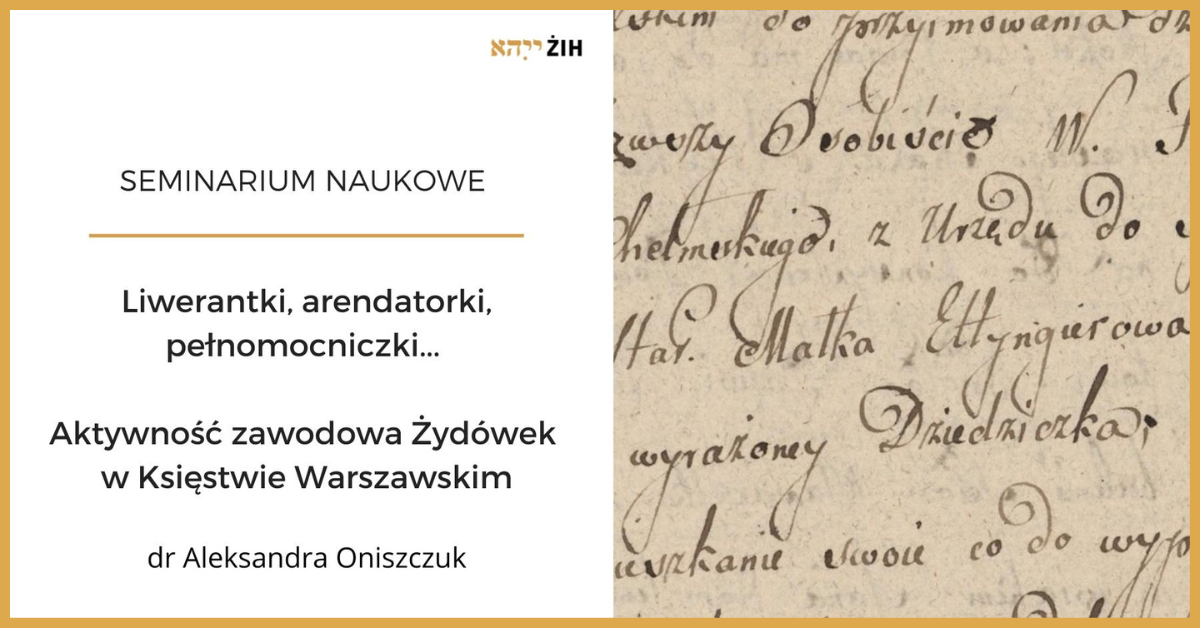 ייִהא ŻIH
SEMINARIUM NAUKOWE
Liwerantki, arendatorki,
pełnomocniczki...
Aktywność zawodowa Żydówek
w Księstwie Warszawskim
dr Aleksandra Oniszczuk
do przyimowania
Osobiście W.
z Urzędu do
Matka Ettyngierowa
wyrażoney Dziedziczka,
swoie co do